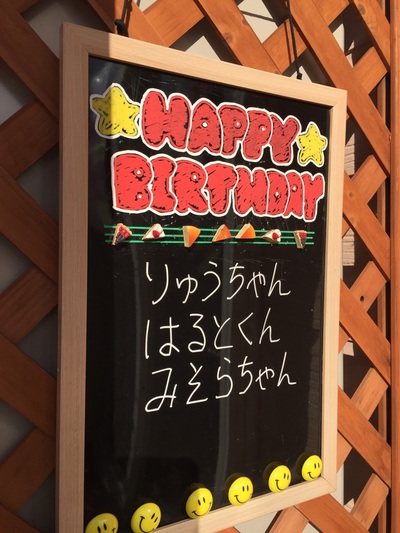 HAPPY
BIRTHDAY
りゅうちゃん
はるとくん
みそらちゃん